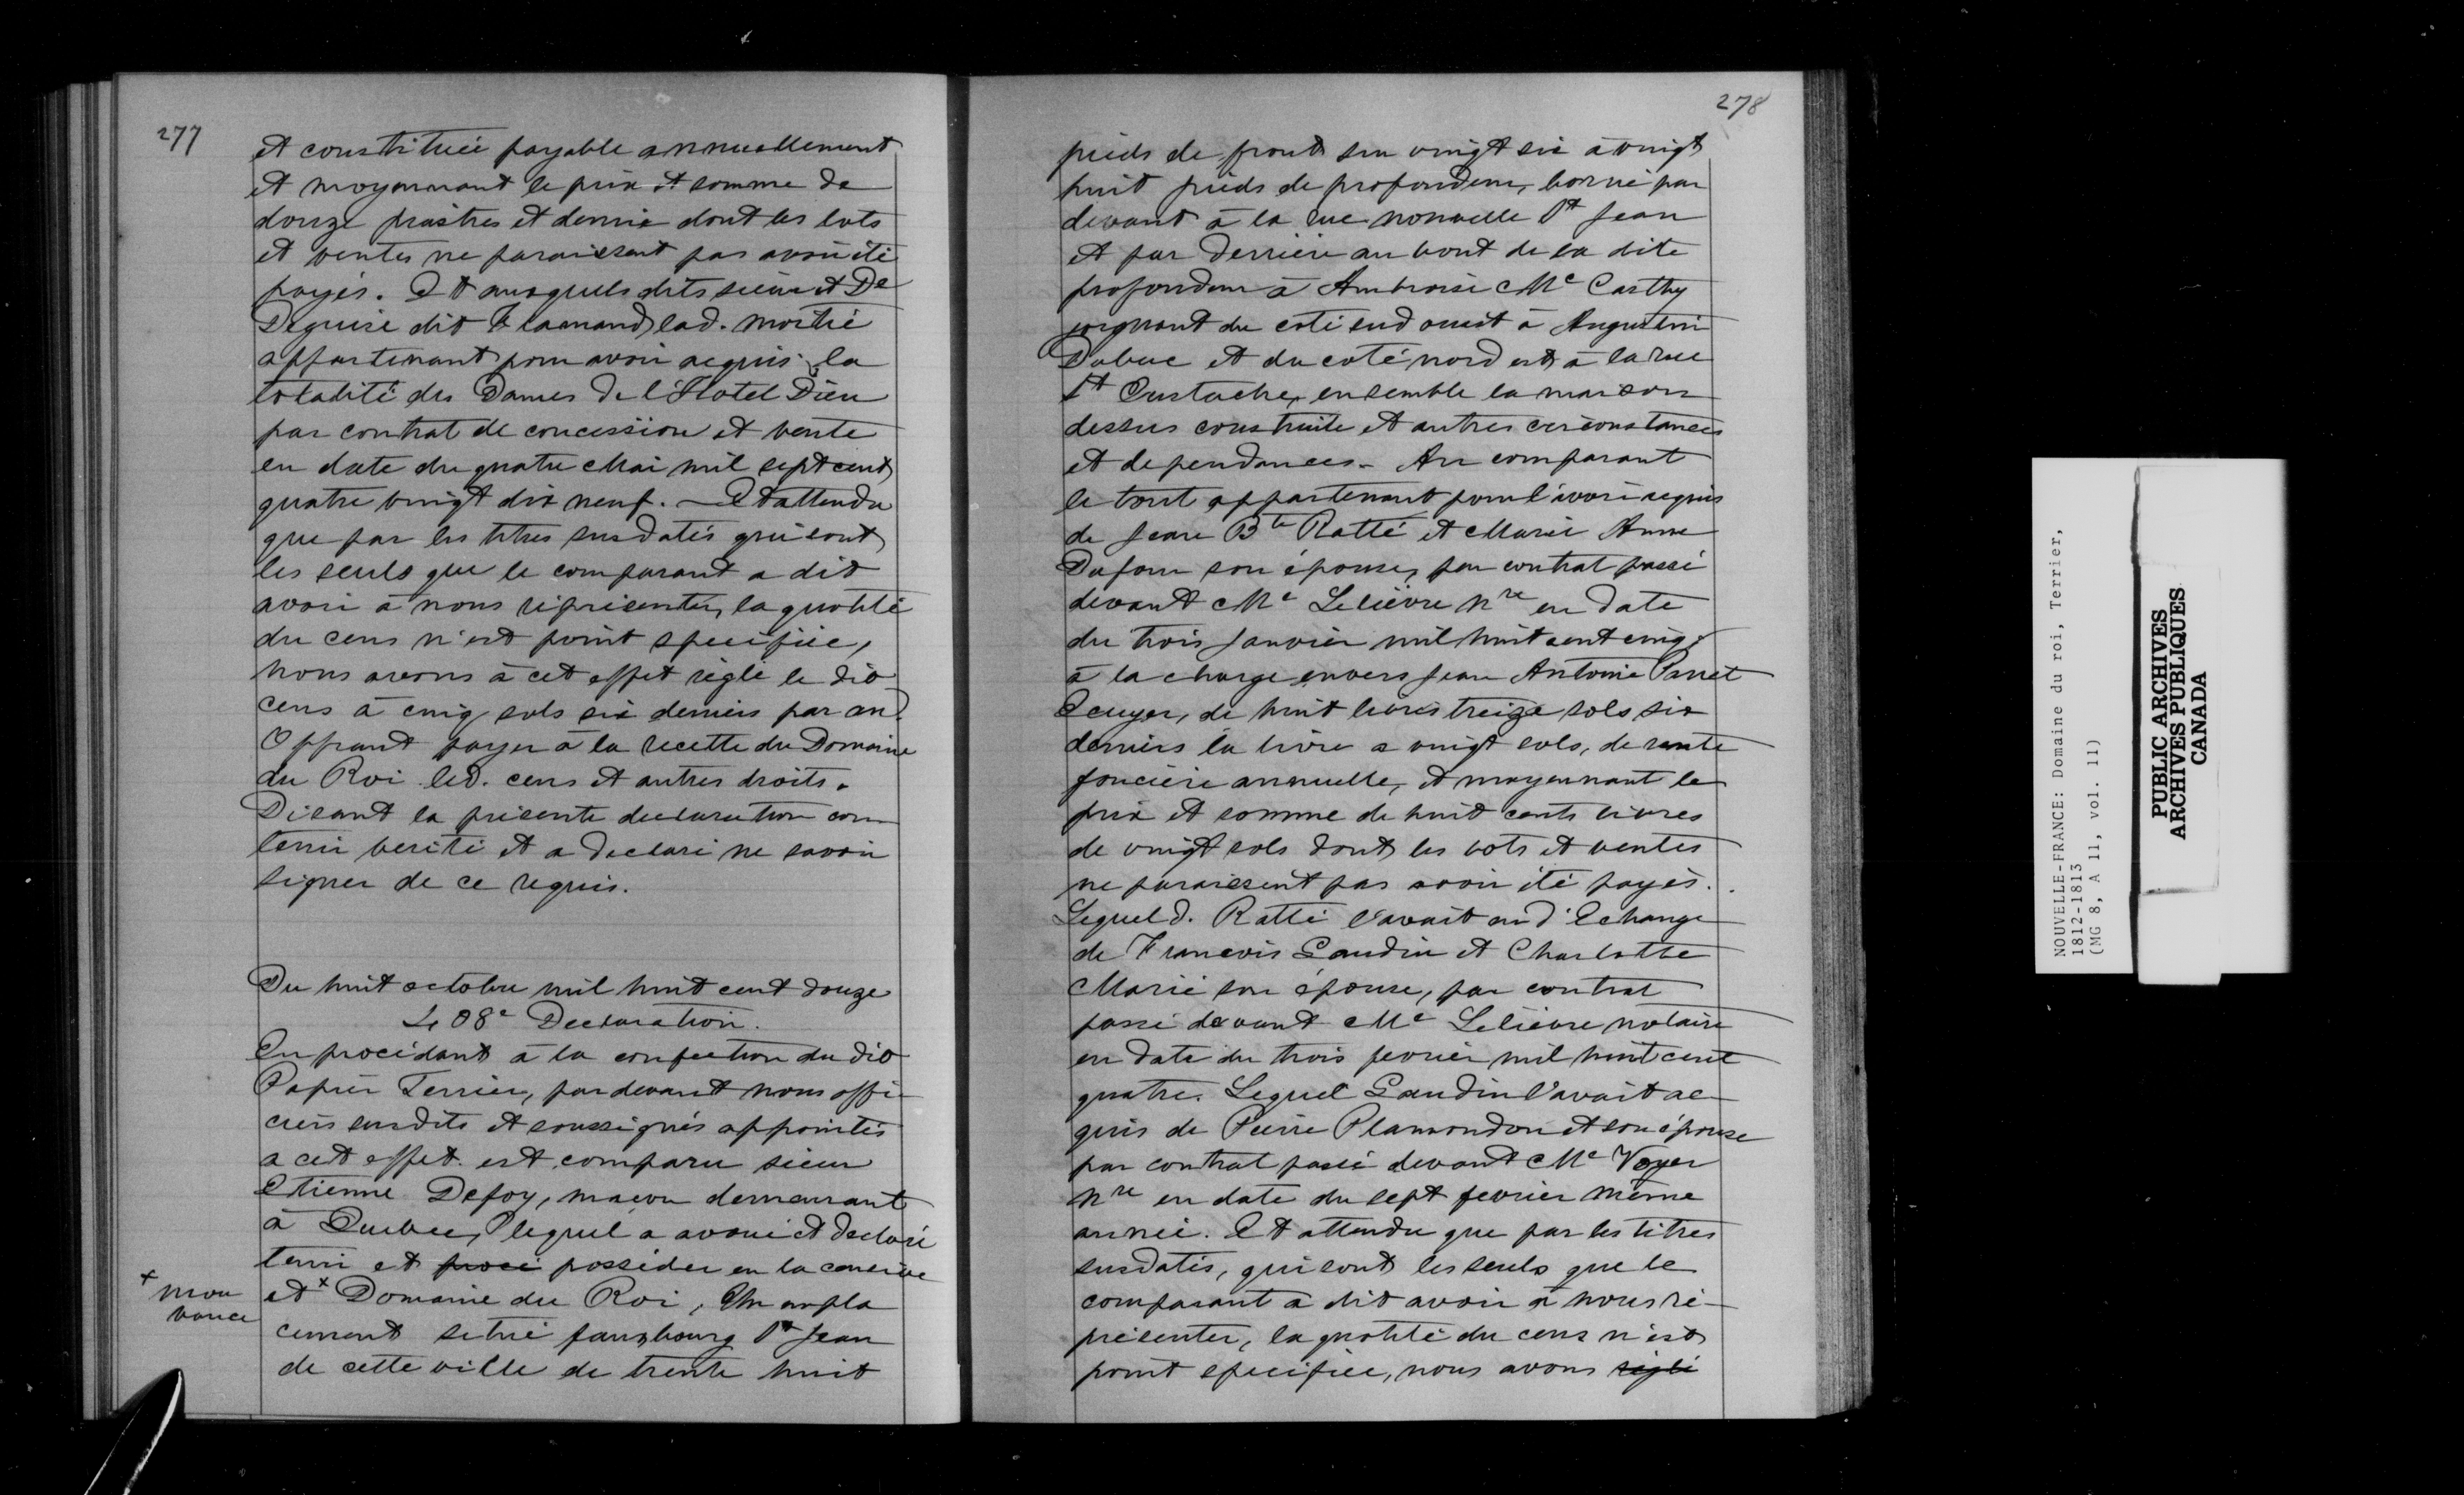 277
et constituée payable annuellement
et moyennant le prix et somme de
douze piastres et demie dont les lots
et ventes ne paraissent pas avoir été
payés. Et auxquels dits sieur et De
Deguise dit Flamand lad. moitié
appartenant pour avoir acquis la
totalité des Dames de l'Hotel Dieu
par contrat de concession et vente
en date du quatre Mai mil sept cent
quatre vingt dix neuf. — Et attendu
que par les titres susdatés qui sont
les seuls que le comparant a dit
avoir à nous réprésenter, la quotité
du cens n'est point specifiée,
nous avons à cet effet réglé le dit
cens à cinq sols six deniers par an.
Offrant payer à la recette du Domaine
du Roi led. cens et autres droits.
Disant la présente declaration con
tenir verité et a declaré ne savoir
signer de ce requis.
Du huit octobre mil huit cent douze
408e Declaration.
En procédant à la confection du dit
Papier Terrier, par devant nous offi-
ciers susdits et soussignés appointés
a cet effet est comparu sieur
Etienne Defoy, maçon demeurant
à Quebec, lequel a avoué et declaré
tenir et possèder en la censive
et x Domaine du Roi, Un empla
x mou
vance
cement situé fauxbourg St Jean
de cette ville de trente huit
278
pieds de front sur vingt six à vingt
huit pieds de profondeur, borné par
devant à la rue nouvelle St Jean
et par derrière au bout de la dite
profondeur à Ambroise Mc Carthy
joignant du coté sud ouest à Augustin
Dubuc et du coté nord est à la rue
St Eustache, ensemble la maison
dessus construite et autres circonstances
et dependances. Au comparant
le tout appartenant pour l'avoir acquis
de Jean Bte Ratté et Marie Anne
Dufour son épouse, par contrat passé
devant Me Lelièvre Nre en date
du trois Janvier mil huit cent cinq,
à la charge envers Jean Antoine Panet
Ecuyer, de huit livres treize sols six
deniers la livre a vingt sols, de rente
foncière annuelle, et moyennant le
prix et somme de huit cents livres
de vingt sols dont les lots et ventes
ne paraissent pas avoir été payés.
Lequel d. Ratté l'avait eu d'Echange
de Francois Gaudin et Charlotte
Marie son épouse, par contrat
passé devant Me Lelièvre notaire
en date du trois fevrier mil huit cent
quatre. Lequel Gaudin l'avait ac-
quis de Pierre Plamondon et son épouse
par contrat passé devant Me Voyer
Nre en date du sept fevrier même
année. Et attendu que par les titres
susdatés, qui sont les seuls que le
comparant a dit avoir à nous ré-
présenter, la quotité du cens n'est
point specifiée, nous avons réglé
NOUVELLE-FRANCE: Domaine du roi, Terrier,
1812-1813
(MG 8, A 11, vol. 11)
PUBLIC ARCHIVES
ARCHIVES PUBLIQUES
CANADA